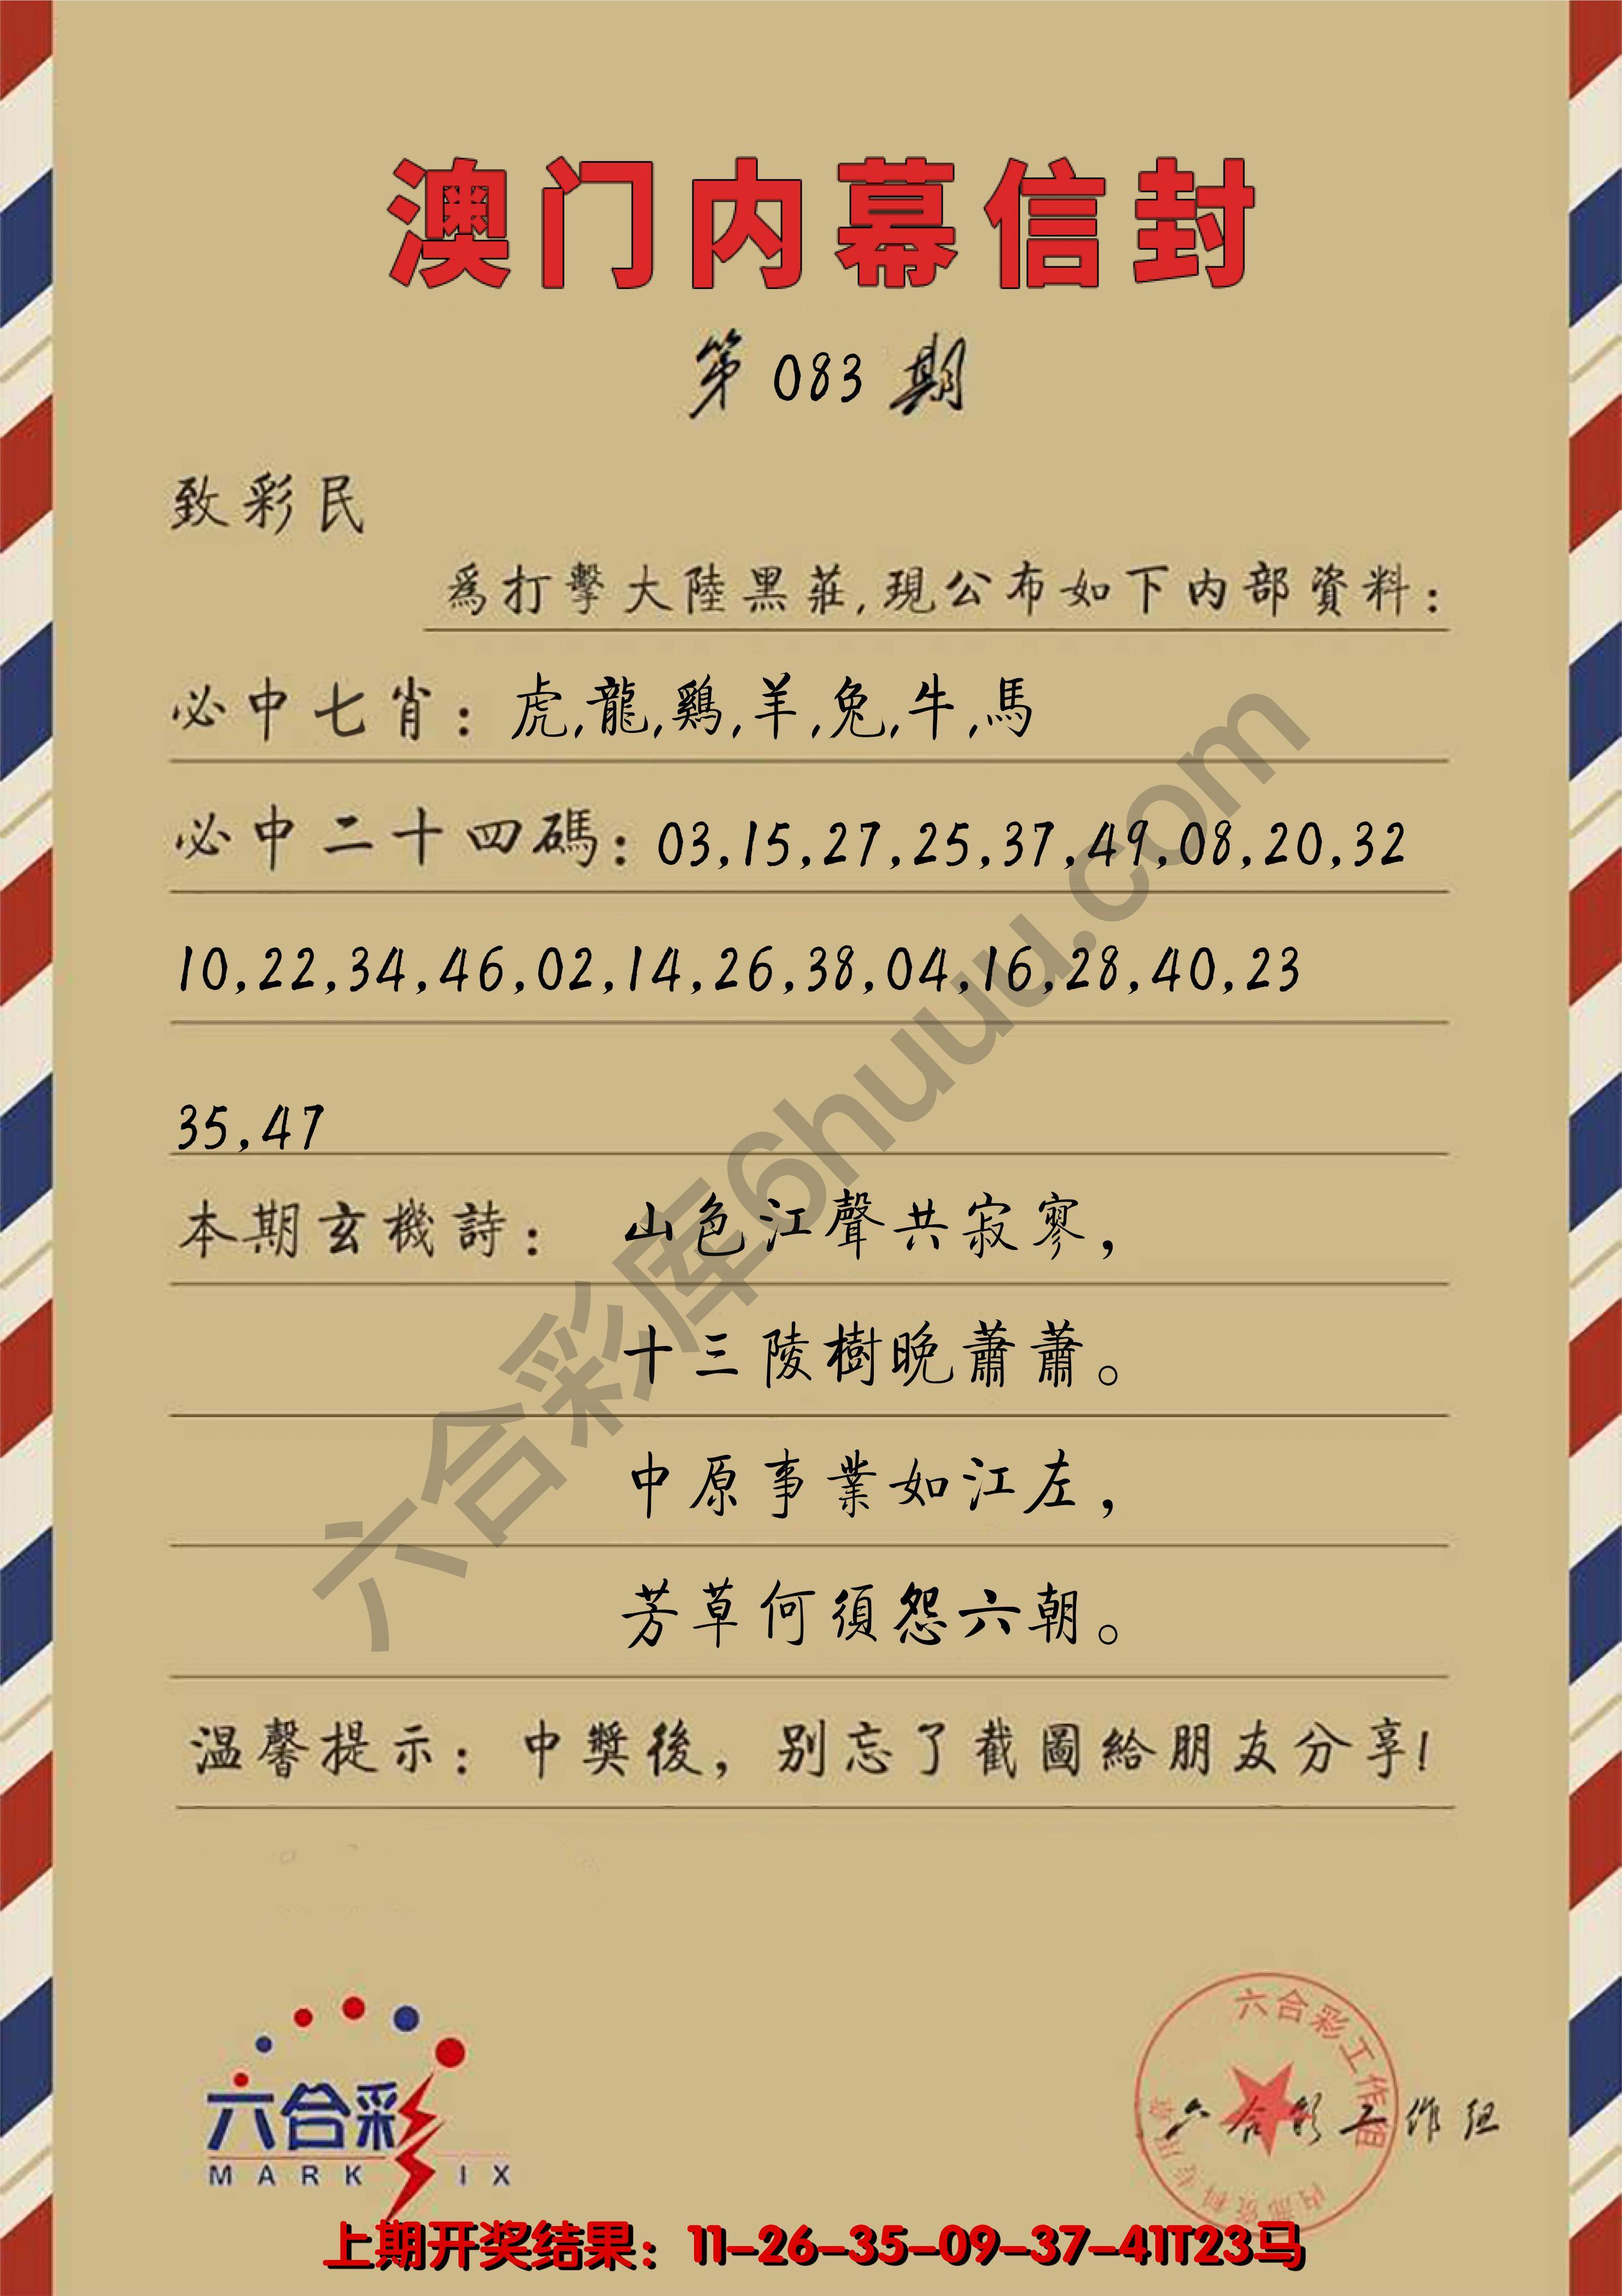 澳门内幕信封
第083期
致彩民
爲打擊大陸黑莊,現公布如下内部資料:
必中七肖: 虎,龍,鷄,羊,兔,牛,馬
必中二十四碼: 03,15,27,25,37,49,08,20,32
10,22,34,46,02,14,26,38,04,16,28,40,23
35,47
本期玄機詩: 山色江聲共寂寥,
十三陵樹晚蕭蕭。
中原事業如江左,
芳草何須怨六朝。
温馨提示: 中獎後, 别忘了截圖給朋友分享!
六合彩库6huuu.com
六合彩
MARK SIX
六合彩工作组
内部资料专用章
六合彩工作组
上期开奖结果：11-26-35-09-37-41T23马